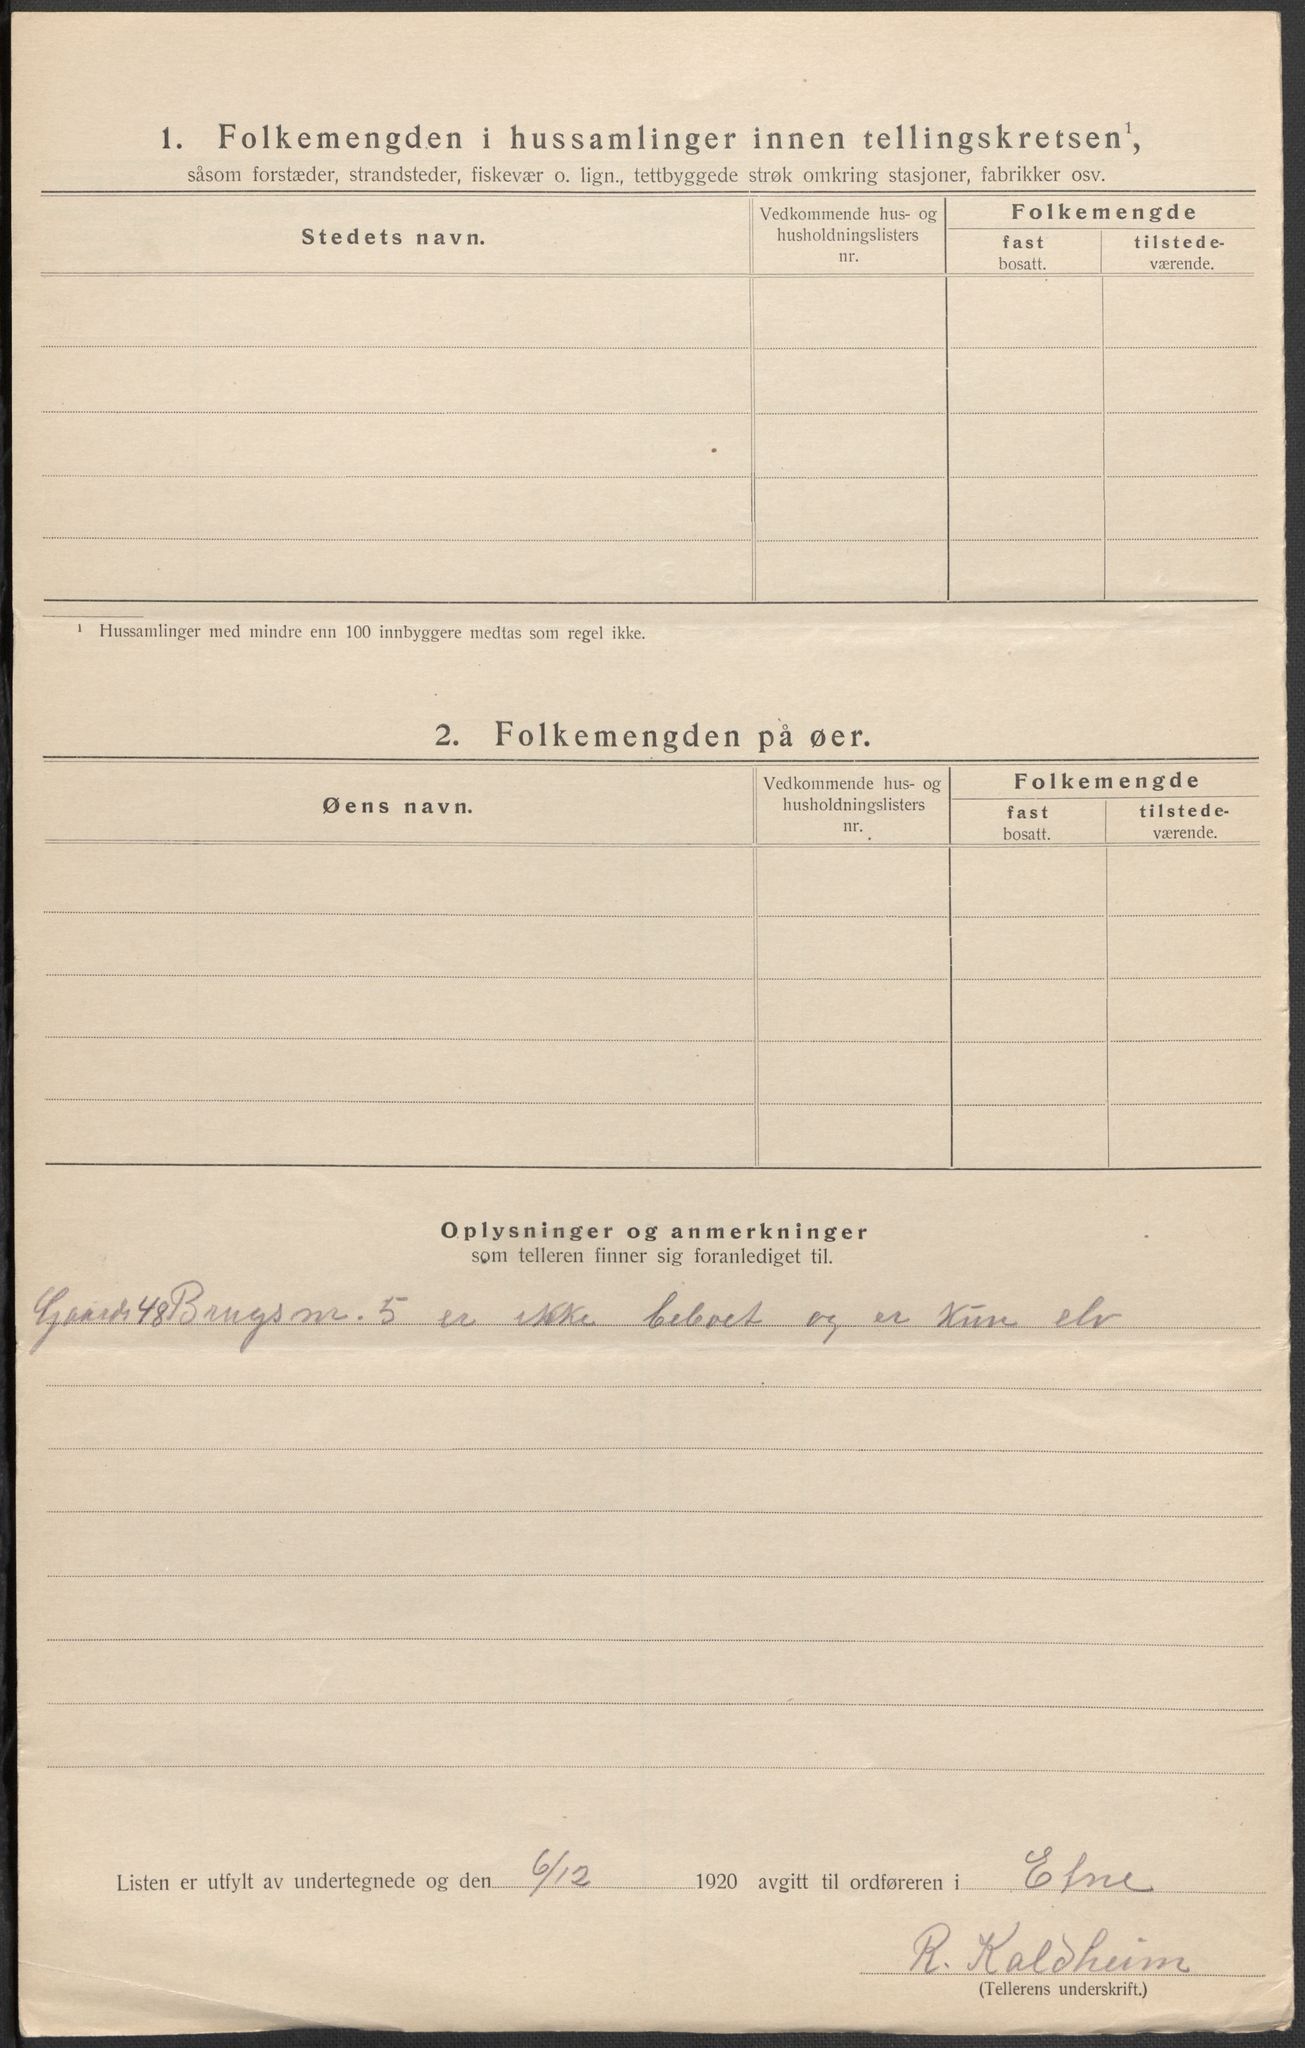 1. Folkemengden i hussamlinger innen tellingskretsen¹,
såsom forstæder, strandsteder, fiskevær o. lign., tettbyggede strøk omkring stasjoner, fabrikker osv.
Stedets navn.
Vedkommende hus- og
husholdningslisters
nr.
Folkemengde
fast
bosatt.
tilstede-
værende.
¹ Hussamlinger med mindre enn 100 innbyggere medtas som regel ikke.
2. Folkemengden på øer.
Øens navn.
Vedkommende hus- og
husholdningslisters
nr.
Folkemengde
fast
bosatt.
tilstede-
værende.
Oplysninger og anmerkninger
som telleren finner sig foranlediget til.
Gaards 48 Brugsnr. 5 er ikke beboet og er kun elv
Listen er utfylt av undertegnede og den 6/12 1920 avgitt til ordføreren i Etne
R. Kaldheim
(Tellerens underskrift.)